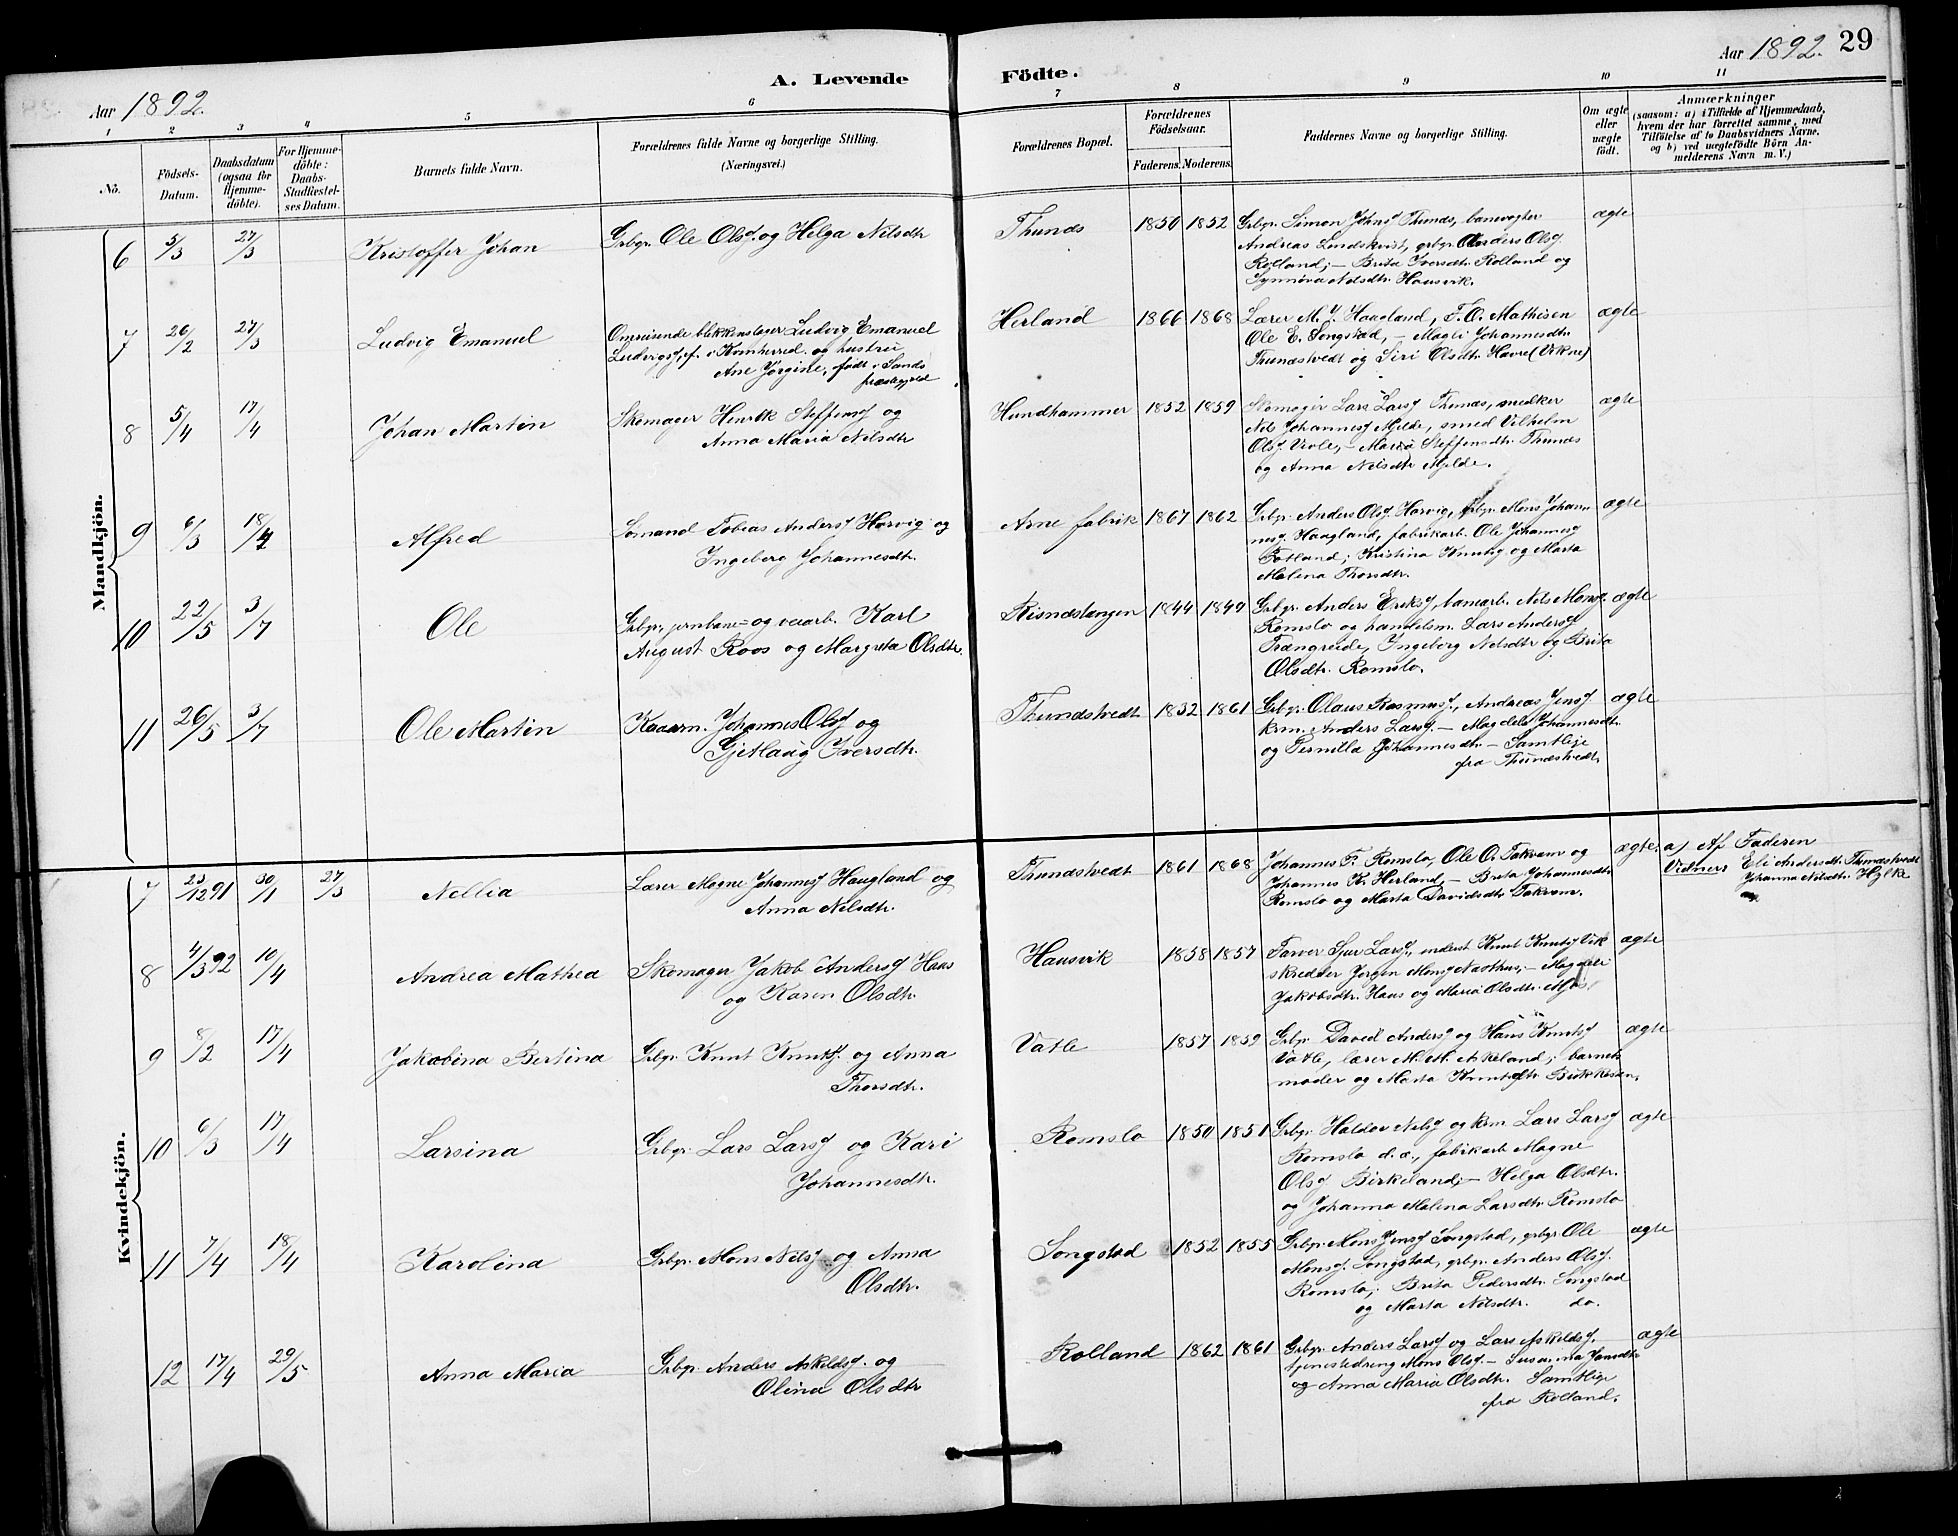 Aar 1892.
A. Levende Födte.
Aar 1892. 29
1 2 3 4 5 6 7 8 9 10 11
No.
Födsels-
Datum.
Daabsdatum
(ogsaa for
Hjemme-
döbte).
For Hjemme-
döbte:
Daabs-
Stadfæstel-
ses Datum.
Barnets fulde Navn.
Forældrenes fulde Navne og borgerlige Stilling.
(Næringsvei.)
Forældrenes Bopæl.
Forældrenes
Födselsaar.
Faderens. Moderens.
Faddernes Navne og borgerlige Stilling.
Om ægte
eller
uægte
födt.
Anmærkninger
(saasom: a) i Tilfælde af Hjemmedaab,
hvem der har forrettet samme, med
Tilföielse af to Daabsvidners Navne,
og b) ved uægtefödte Börn An-
melderens Navn m. V.)
Mandkjön.
6 5/3 27/3 Kristoffer Johan
Grbgr. Ole Olsf. og Helga Nilsdtr
Thunæs 1850 1852
Grbgr. Simon Johnsf Thunæs, banevogter
Andreas Lundskvist, grbgr. Anders Olsf.
Rolland; – Brita Iversdtr. Rolland og
Synnöva Nilsdtr. Hausvik.
ægte
7 26/2 27/3 Ludvig Emanuel
Omreisende blikkenslager Ludvig Emanuel
Ludvigsf, f. i Kvinherred. og hustru
Ane Jörgine, födt i Sands
præstegjeld
Herland 1866 1868
Lærer M. J. Haugland, F. O. Mathisen
Ole E. Songstad, – Magli Johannesdtr.
Thunæstvedt og Siri Olsdtr. Havre (Vikne)
ægte
8 5/4 17/4 Johan Martin
Skomager Henrik Steffensf og
Anna Maria Nilsdtr
Hundhammer 1852 1859
Skomager Lars Larsf Thunæs, snedker
Nils Johannesf Mjelde, smed Vilhelm
Olsf. – Maria Steffensdtr. Thunæs
og Anna Nilsdtr Mjelde.
ægte
9 6/3 18/4 Alfred
Sömand Tobias Andersf Horvig og
Ingeberg Johannesdtr.
Arne fabrik 1867 1862
Grbgr. Anders Olsf. Horvig, grbgr. Mons Johan-
nesf. Haugland, fabrikarb. Ole Johannesf
Totland; Kristina og Marta
Malena Thorsdtr.
ægte
10 22/5 3/7 Ole
Grbgr., jernbane- og veiarb. Karl
August Roos og Margreta Olsdtr.
Risnæstangen 1844 1849
Grbgr. Anders Eriksf, banearb. Nils Monsf.
Romslo og handelsm. Lars Andersf
Trængreide, Ingeborg Nilsdtr og Brita
Olsdtr. Romslo.
ægte
11 26/5 3/7 Ole Martin
Kaarm. Johannes Olsf og
Gjetlaug Iversdtr.
Thunæstvedt 1832 1861
Grbgr. Olaus Rasmusf., Andreas Jensf
krm. Anders Larsf. – Magdela Johannesdtr.
og Pernilla Johannesdtr. – Samtlige
fra Thunæstvedt.
ægte
Kvindekjön.
7 23/12 91 30/1 27/3 Nellia
Lærer Magne Johannesf Haugland og
Anna Nilsdtr.
Thunæstvedt 1861 1868
Johannes F. Romslo, Ole O. Takvam og
Johannes K. Herland – Brita Johannesdtr
Romslo og Marta Davidsdtr Takvam.
ægte.
a) Af Faderen
Vidner: Eli Andersdtr. Thunæstvedt
Johanna Nilsdtr. Hylke
8 4/3 92 10/4 Andrea Mathea
Skomager Jakob Andersf Haus
og Karen Olsdtr.
Hausvik 1858 1857
Farver Sjur Larsf., inderst Knut Knutsf Vik
skredder Jörgen Monsf Nasthus, – Magdeli
Jakobsdtr. Haus og Maria Olsdtr. Mjös
ægte
9 8/2 17/4 Jakobina Bertina
Grbgr. Knut Knutsf. og Anna
Thorsdtr.
Vatle 1857 1859
Grbgr David Andersf og Hans Knutsf
Vatle, lærer M. M. Askeland; barnets
moder og Marta Knutsdtr
ægte
10 6/3 17/4 Larsina
Grbgr. Lars Larsf og Kari
Johannesdtr.
Romslo 1850 1851
Grbgr. Haldor Nilsf og krm. Lars Larsf
Romslo d. æ., fabrikarb Magne
Olsf Birkeland; – Helga Olsdtr.
og Johanna Malena Larsdtr. Romslo
ægte
11 7/4 18/4 Karolina
Grbgr. Mons Nilsf og Anna
Olsdtr.
Songstad 1852 1855
Grbgr. Mons Jensf Songstad, grbgr. Ole
Monsf. Songstad, grbgr. Anders Olsf.
Romslo; Brita Pedersdtr. Songstad
og Marta Nilsdtr. do.
ægte
12 17/4 29/5 Anna Maria
Grbgr. Anders Askildsf. og
Olina Olsdtr
Rolland 1862 1861
Grbgr. Anders Larsf og Lars Askildsf.
tjenestedreng Mons Olsf. – Susanna Jansdtr.
og Anna Maria Olsdtr. Samtlige
fra Rolland.
ægte